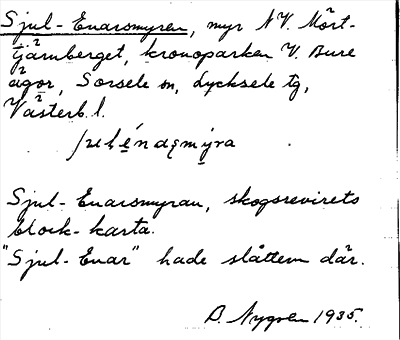 Sjul-Enarsmyren, myr NV. Mört-
tjärnberget, kronoparken V. Bure
ägor, Sorsele sn, Lycksele tg,
Västerb. l.
Sjul-Enarsmyran, skogsrevirets
block-karta.
"Sjul-Enar" hade slåttern där.
B. Nygren 1935.